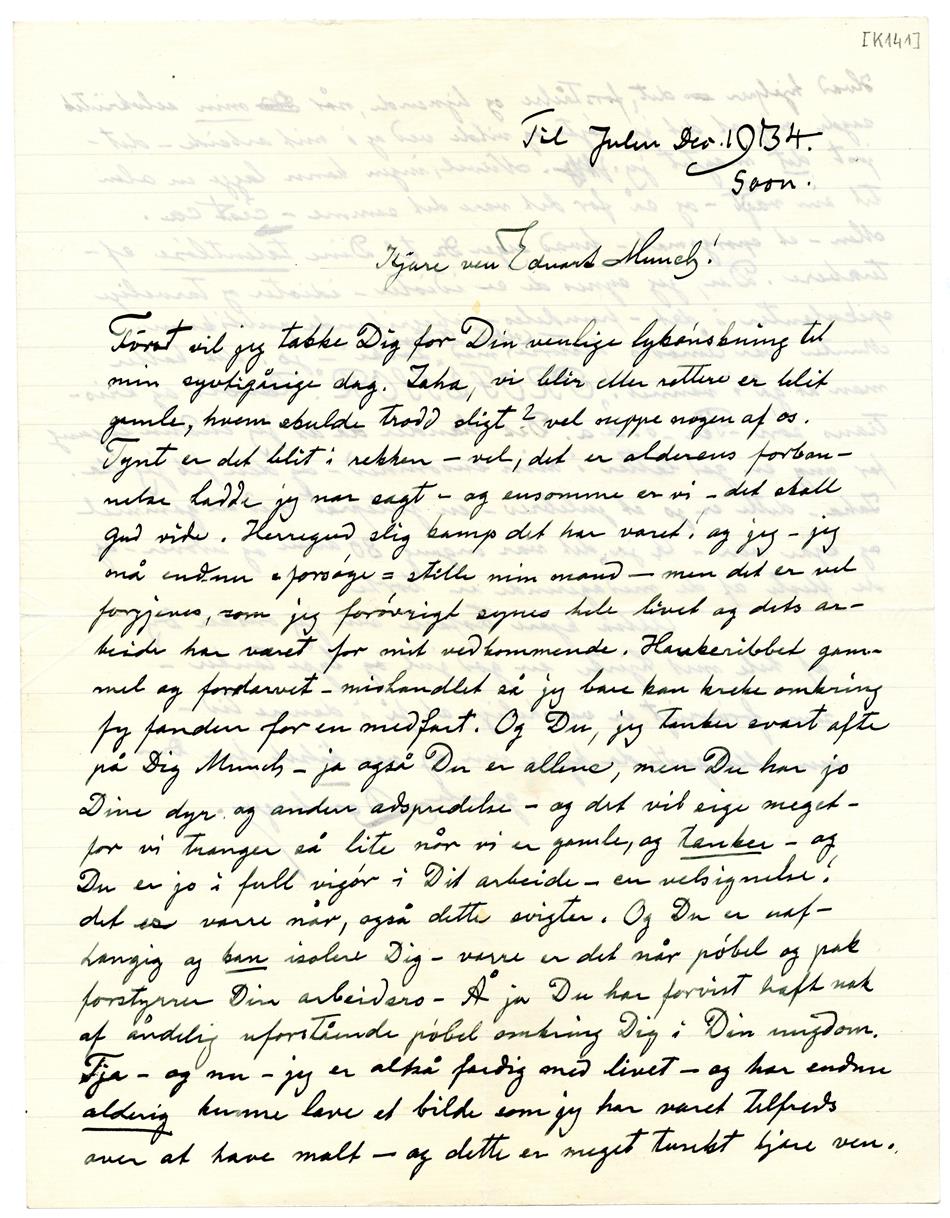 [K141]
Til Julen Dec. 1934.
Soon.
Kjære ven Edvart Munch!
Først vil jeg takke Dig for Din venlige lykønskning til
min syvtigårige dag. Jaha, vi blir eller rettere er blit
gamle, hvem skulde trodd sligt? vel neppe nogen af os.
Tynt er det blit i rekken – vel, det er alderens forban-
nelse hadde jeg nær sagt – og ensomme er vi – det skall
gud vide. Herregud slig kamp det har været! og jeg – jeg
må endnu forsøge = stille min mand – men det er vel
forgjeves, som jeg forøvrigt synes hele livet og dets ar-
beide har været for mit vedkommende. Haukeribbet gam-
mel og fordærvet – mishandlet så jeg bare kan kreke omkring
fy fanden for en medfart. Og Du, jeg tænker svært ofte
på Dig Munch – ja også Du er allene, men Du har jo
Dine dyr og anden adspredelse – og det vil sige meget –
for vi trænger så lite når vi er gamle, og tænker – og
Du er jo i full vigør i Dit arbeide – en velsignelse!
det er værre når, også dette svigter. Og Du er uaf-
hængig og kan isolere Dig – værre er det når pøbel og pak
forstyrrer Din arbeidsro – Å ja Du har forvist haft nok
af åndelig uforstående pøbel omkring Dig i Din ungdom.
Tja – og nu – jeg er altså færdig med livet – og har endnu
alderig kunne lave et bilde som jeg har været tilfreds
over at have malt – og dette er meget tungt kjære ven.